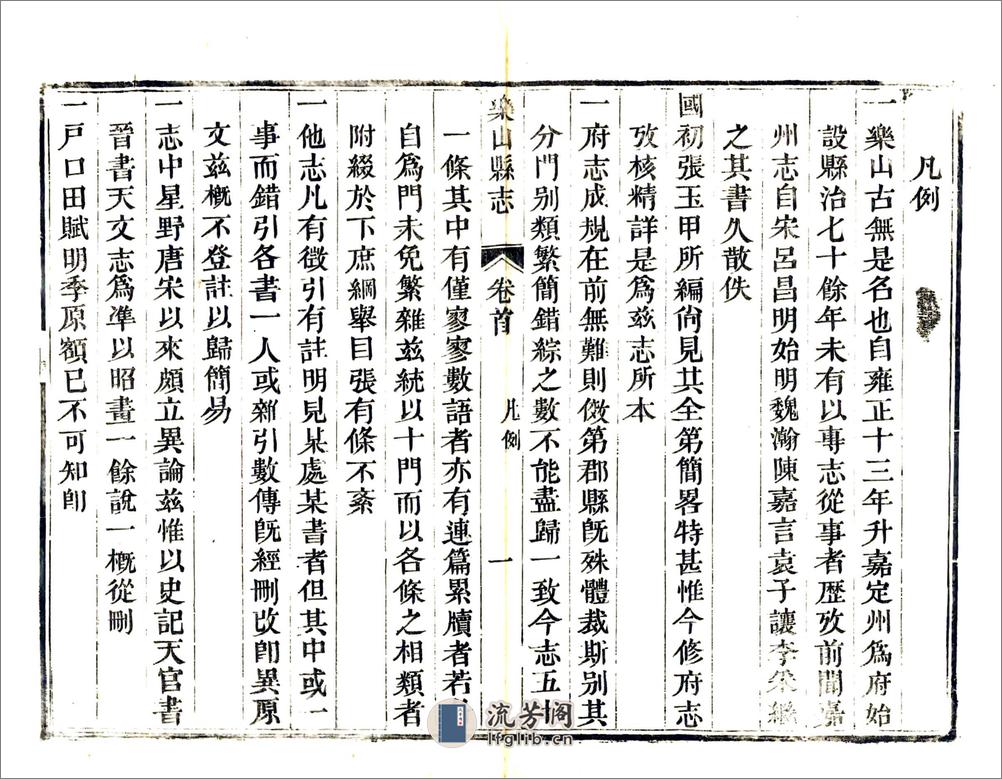 凡例
一樂山古無是名也自雍正十三年升嘉定州為府始
設縣治七十餘年未有以專志從事者歷攷前聞嘉
州志自宋呂昌明始明魏瀚陳嘉言袁子讓李采繼
之其書久散佚
國初張玉甲所編尙見其全第簡畧特甚惟今修府志
攷核精詳是爲玆志所本
一府志成規在前無難則倣第郡縣旣殊體裁斯别其
分門别類繁簡錯綜之數不能盡歸一致今志五十
樂山縣志 卷首 凡例 一
一條其中有僅寥寥數語者亦有連篇累牘者若
自爲門未免繁雜玆統以十門而以各條之相類者
附綴於下庶綱舉目張有條不紊
一他志凡有徵引有註明見某處某書者但其中或一
事而錯引各書一人或新引數傳旣經刪改卽異原
文玆槪不登註以歸簡易
一志中星野唐宋以來頗立異論玆惟以史記天官書
晉書天文志爲準以昭畫一餘說一槪從刪
一戸口田賦明季原額已不可知卽
流芳阁
lfglib.cn